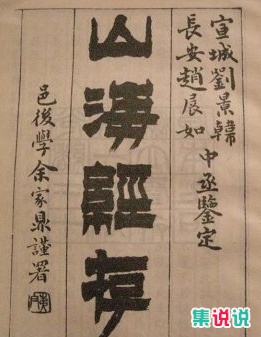 宣城劉景韓
長安趙展如
中丞鑒定
山海經存
邑後學余家鼎謹署
集说说